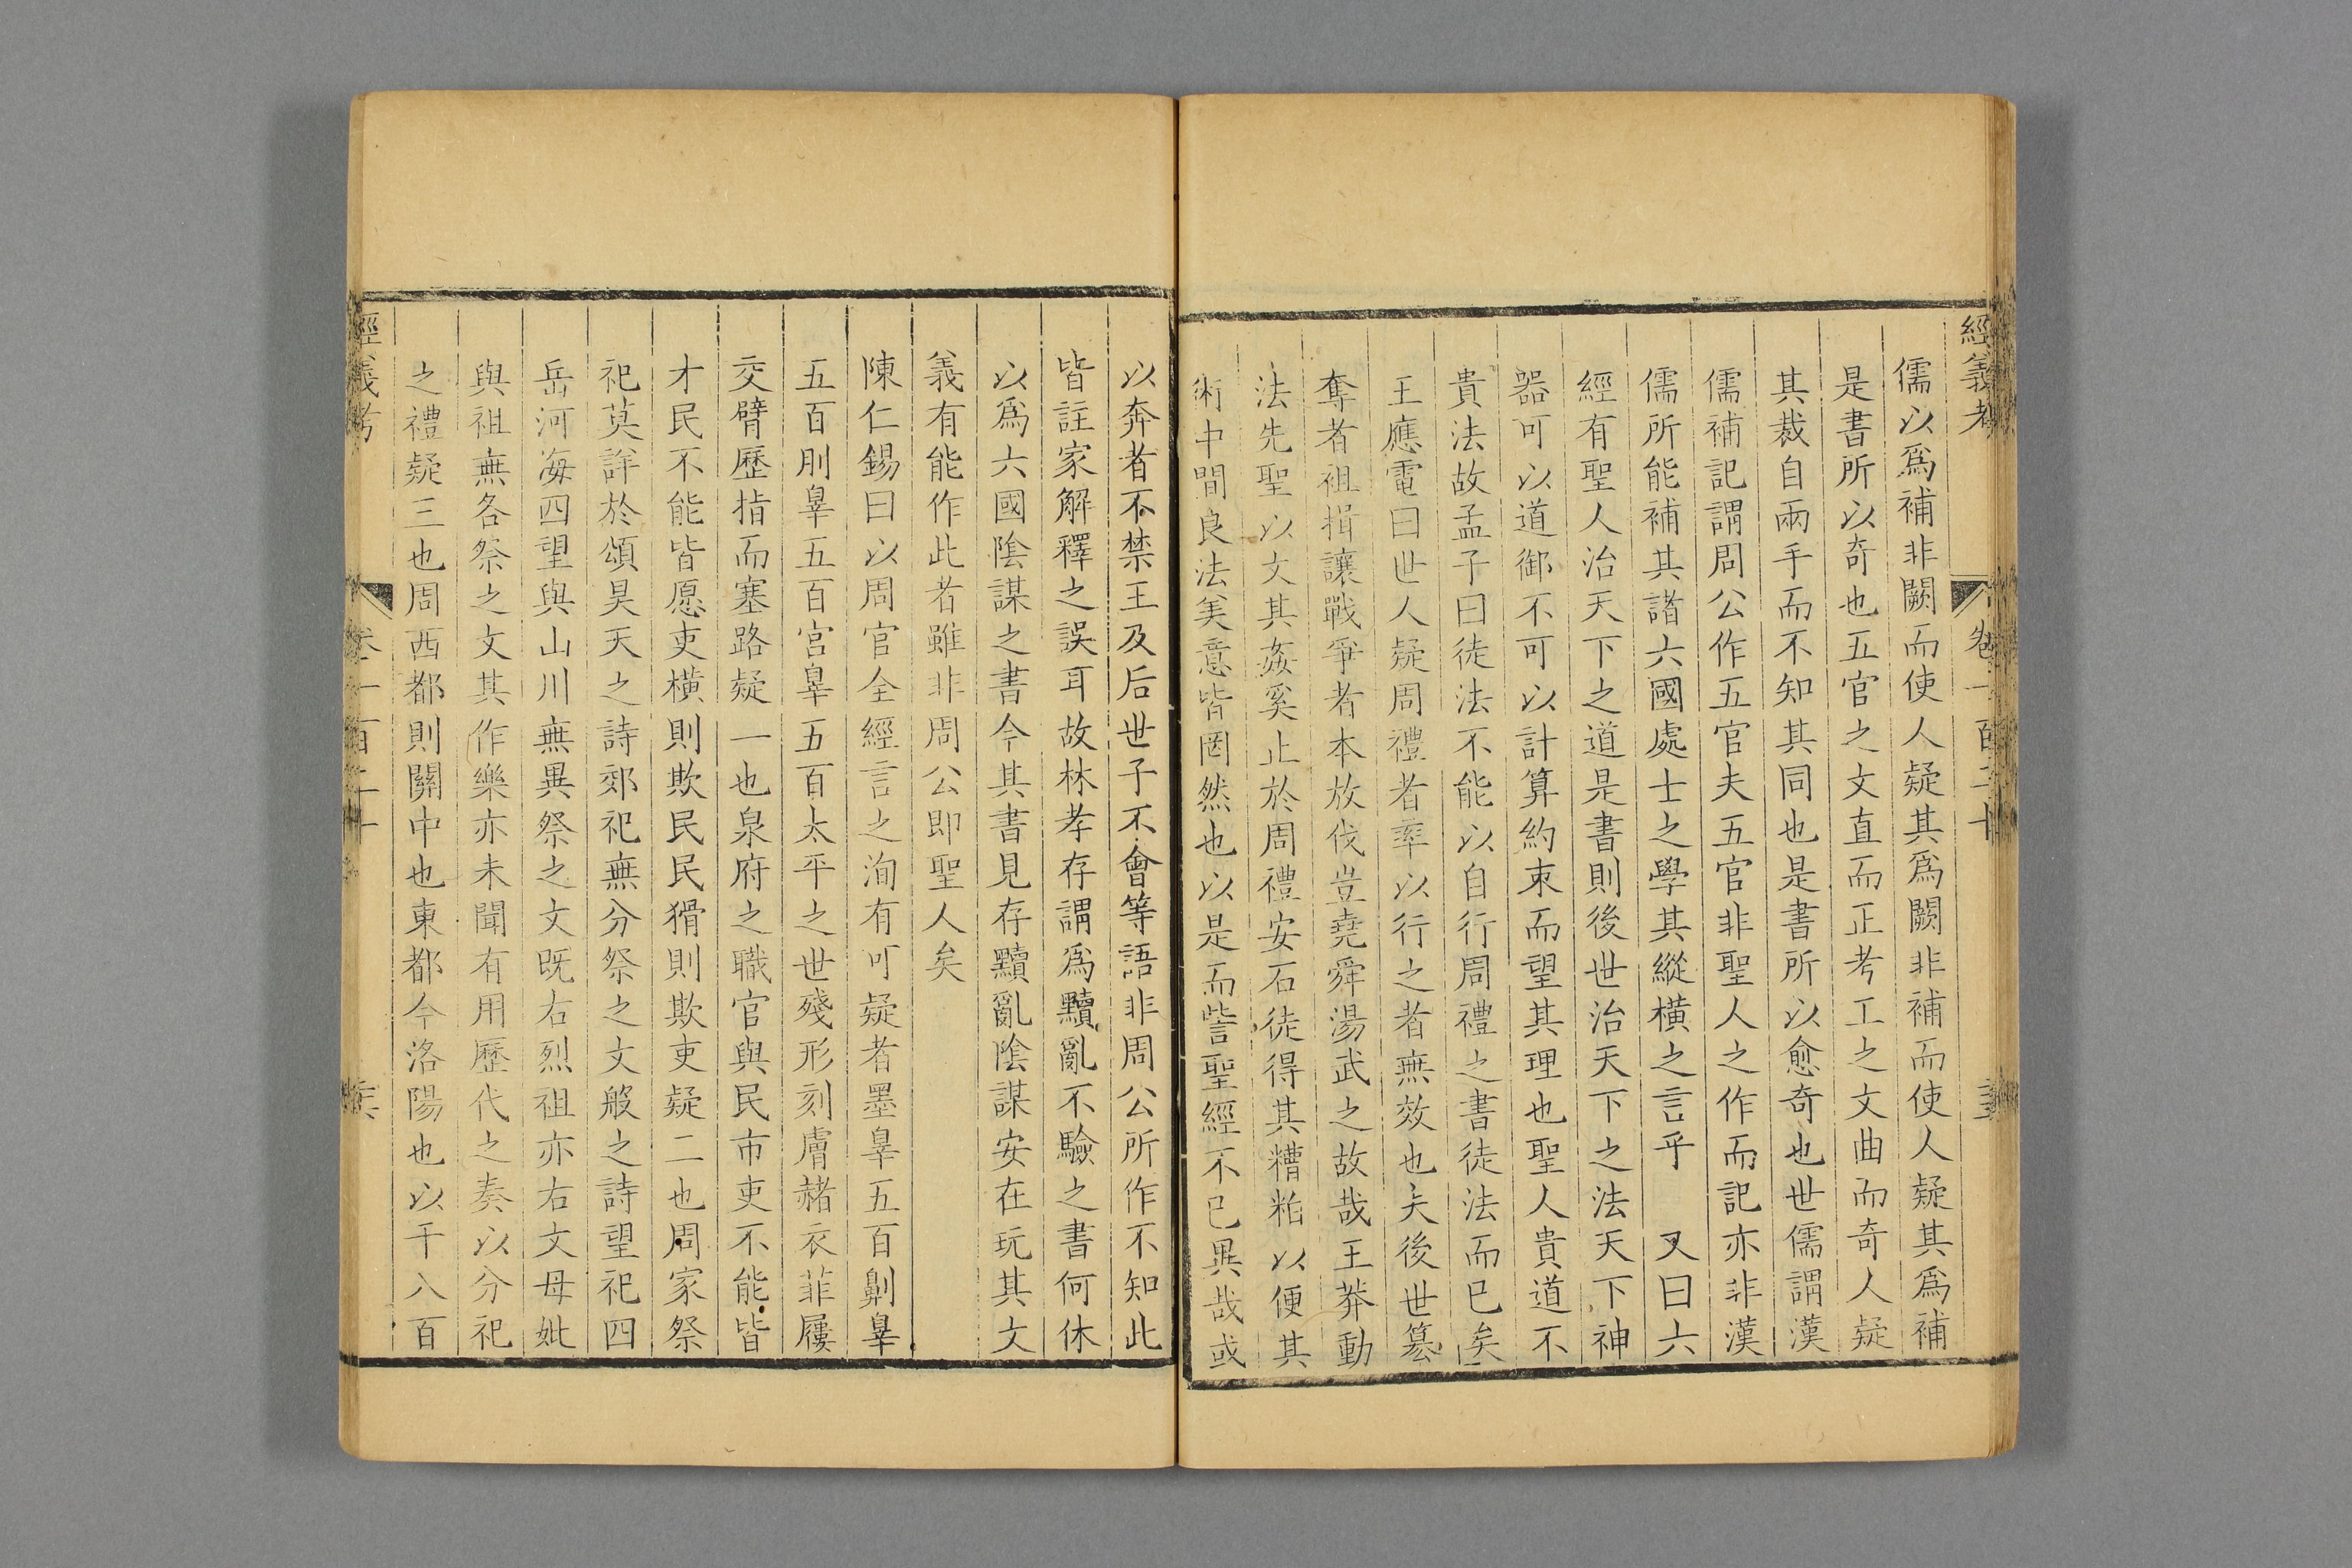 經義考 卷一百二十
儒以爲補非闕而使人疑其爲闕非補而使人疑其爲補
是書所以奇也五官之文直而正考工之文曲而奇人疑
其裁自兩手而不知其同也是書所以愈奇也世儒謂漢
儒補記謂周公作五官夫五官非聖人之作而記亦非漢
儒所能補其諸六國處士之學其縱橫之言乎 又曰六
經有聖人治天下之道是書則後世治天下之法天下神
器可以道御不可以計算約束而望其理也聖人貴道不
貴法故孟子曰徒法不能以自行周禮之書徒法而已矣
王應電曰世人疑周禮者率以行之者無效也夫後世篡
奪者袓揖讓戰爭者本放伐豈堯舜湯武之故哉王莽動
法先聖以文其姦奚止於周禮安石徒得其糟粕以便其
術中間良法美意皆罔然也以是而訾聖經不已異哉或
以奔者不禁王及后世子不會等語非周公所作不知此
皆註家解釋之誤耳故林孝存謂爲黷亂不驗之書何休
以爲六國陰謀之書今其書見存黷亂陰謀安在玩其文
義有能作此者雖非周公即聖人矣
陳仁錫曰以周官全經言之洵有可疑者墨辠五百劓辠
五百刖辠五百宮辠五百太平之世殘形刻膚赭衣菲屨
交臂歷指而塞路疑一也泉府之職官與民市吏不能皆
才民不能皆愿吏橫則欺民民猾則欺吏疑二也周家祭
祀莫詳於頌昊天之詩郊祀無分祭之文般之詩望祀四
岳河海四望與山川無異祭之文既右烈祖亦右文母妣
與祖無各祭之文其作樂亦未聞有用歷代之奏以分祀
之禮疑三也周西都則關中也東都今洛陽也以千八百
經義考 卷一百二十